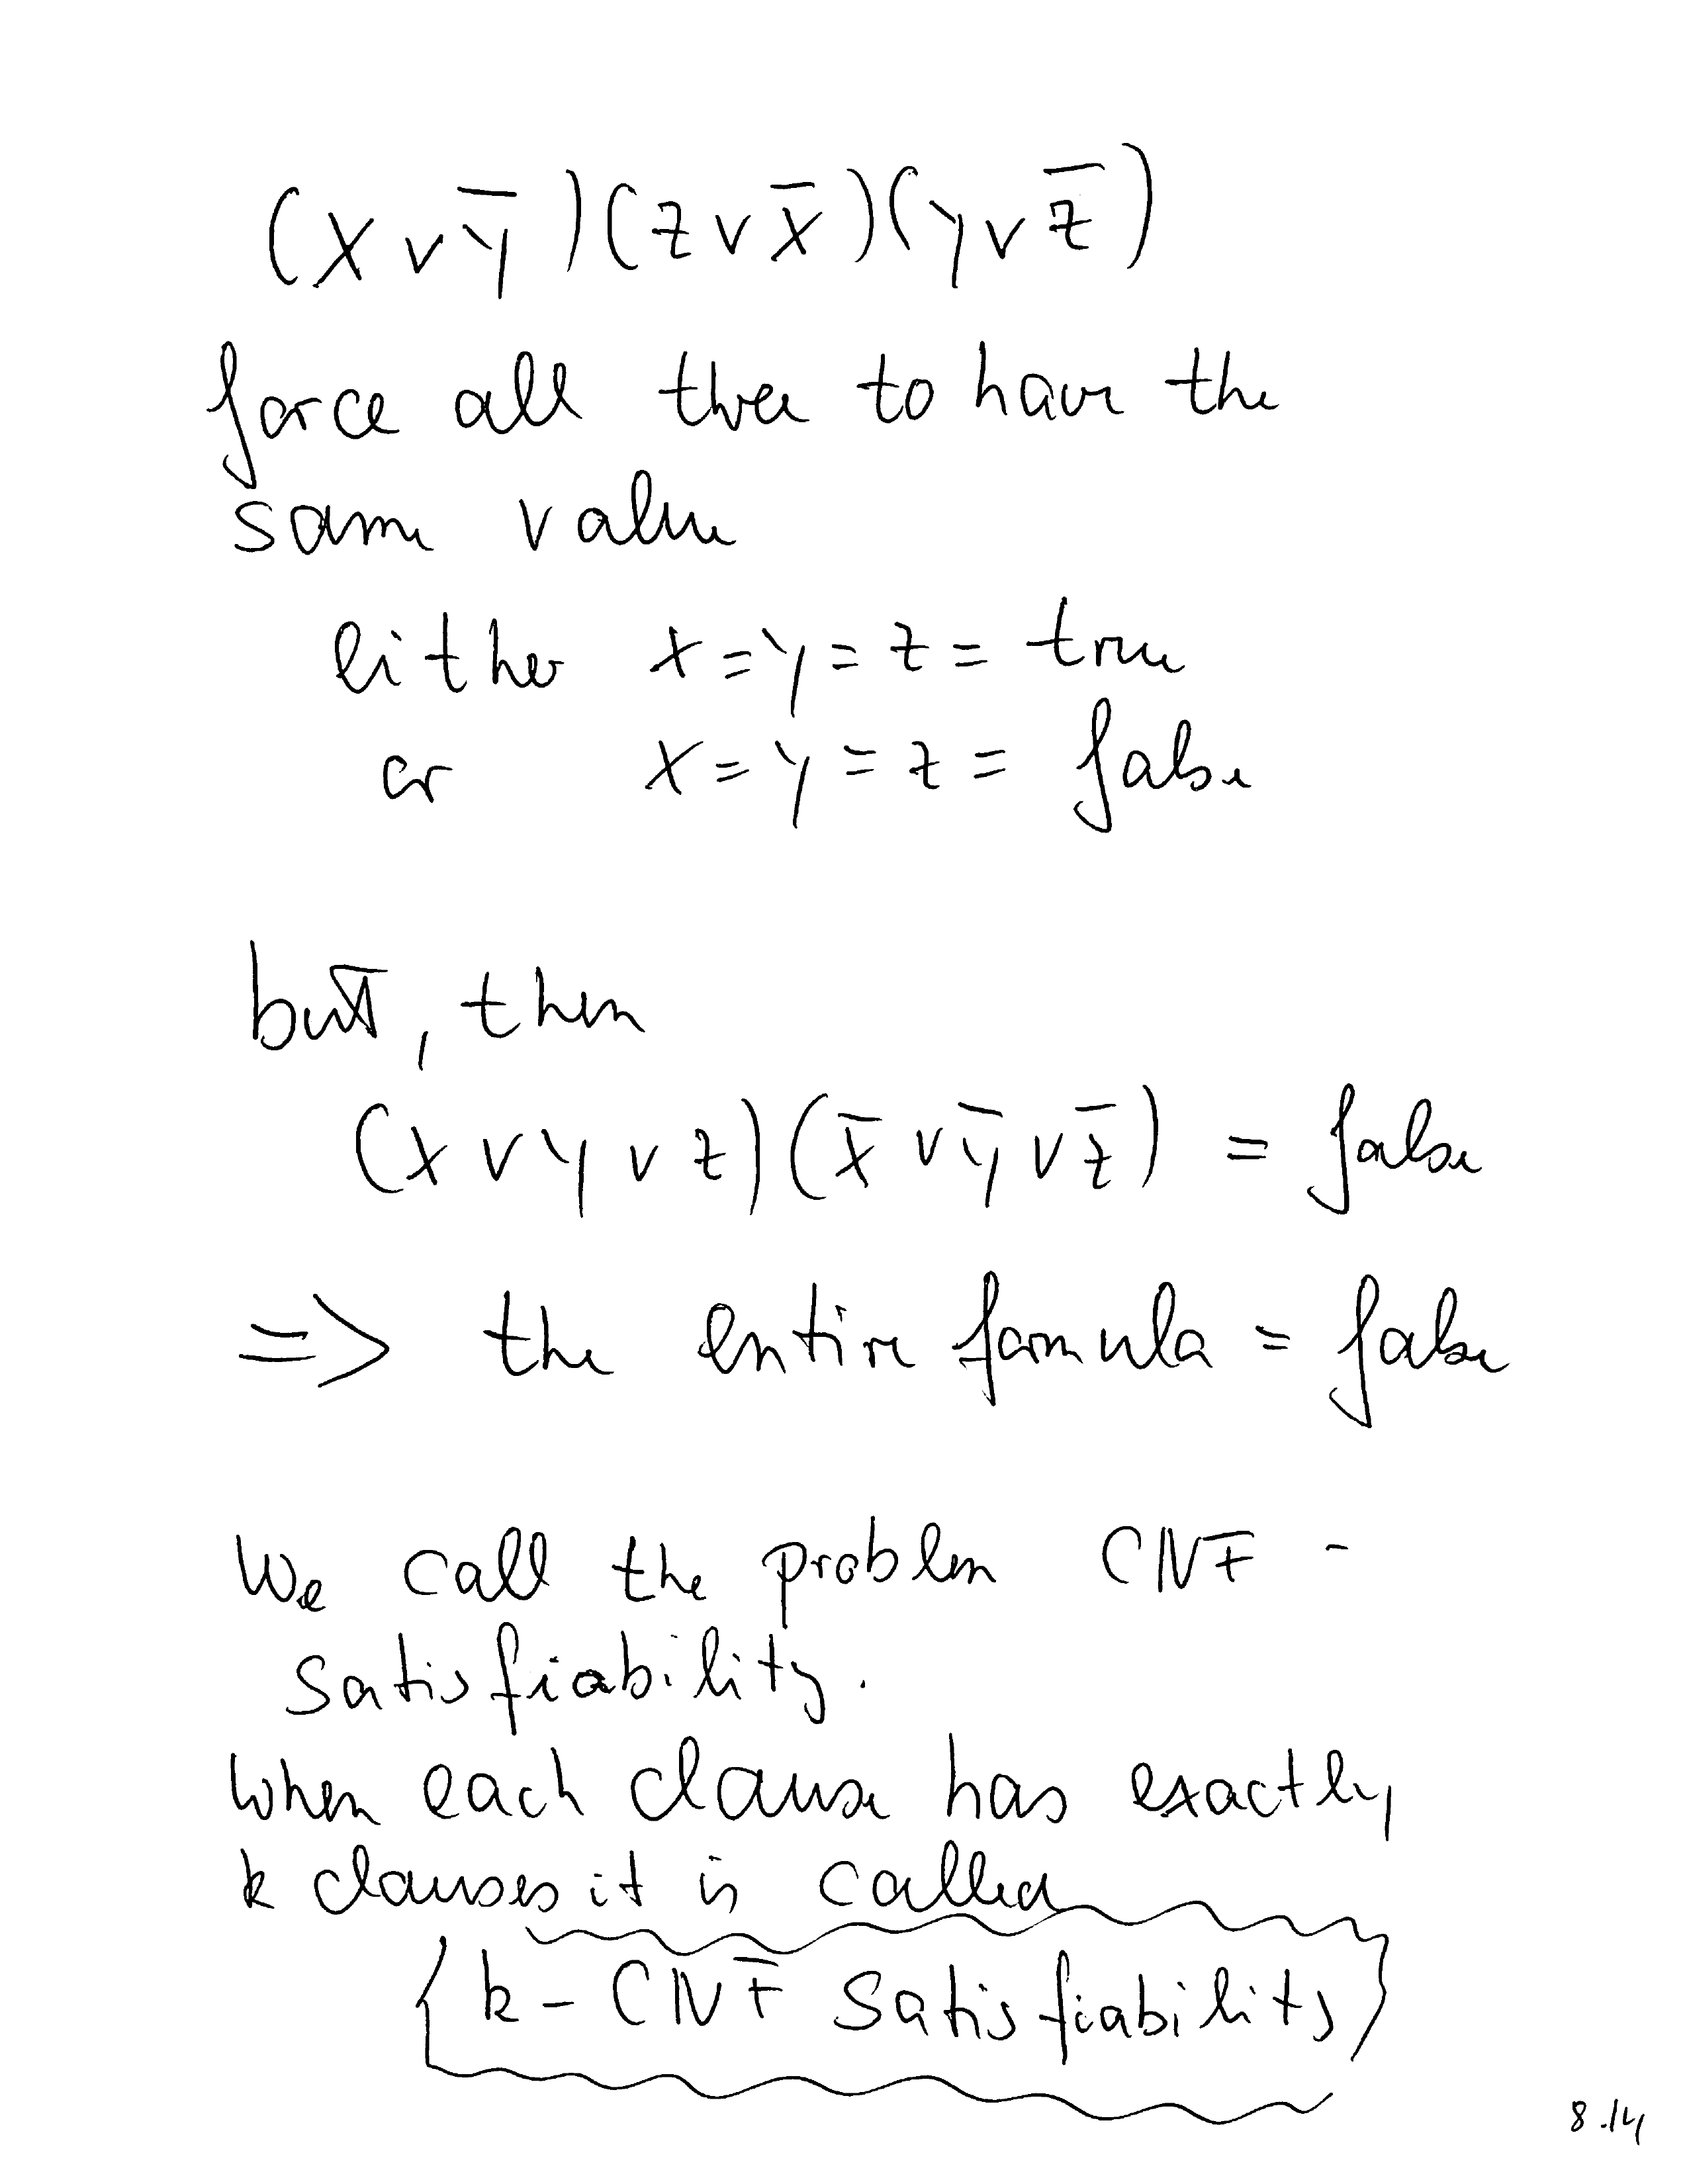 (x ∨ ȳ)(z ∨ x̄)(y ∨ z̄)
force all three to have the
same value
either x = y = z = true
or x = y = z = false
but, then
(x ∨ y ∨ z)(x̄ ∨ ȳ ∨ z̄) = false
=> the entire formula = false
We call the problem CNF -
satisfiability.
When each clause has exactly
k clauses it is called
k - CNF Satisfiability
8.14